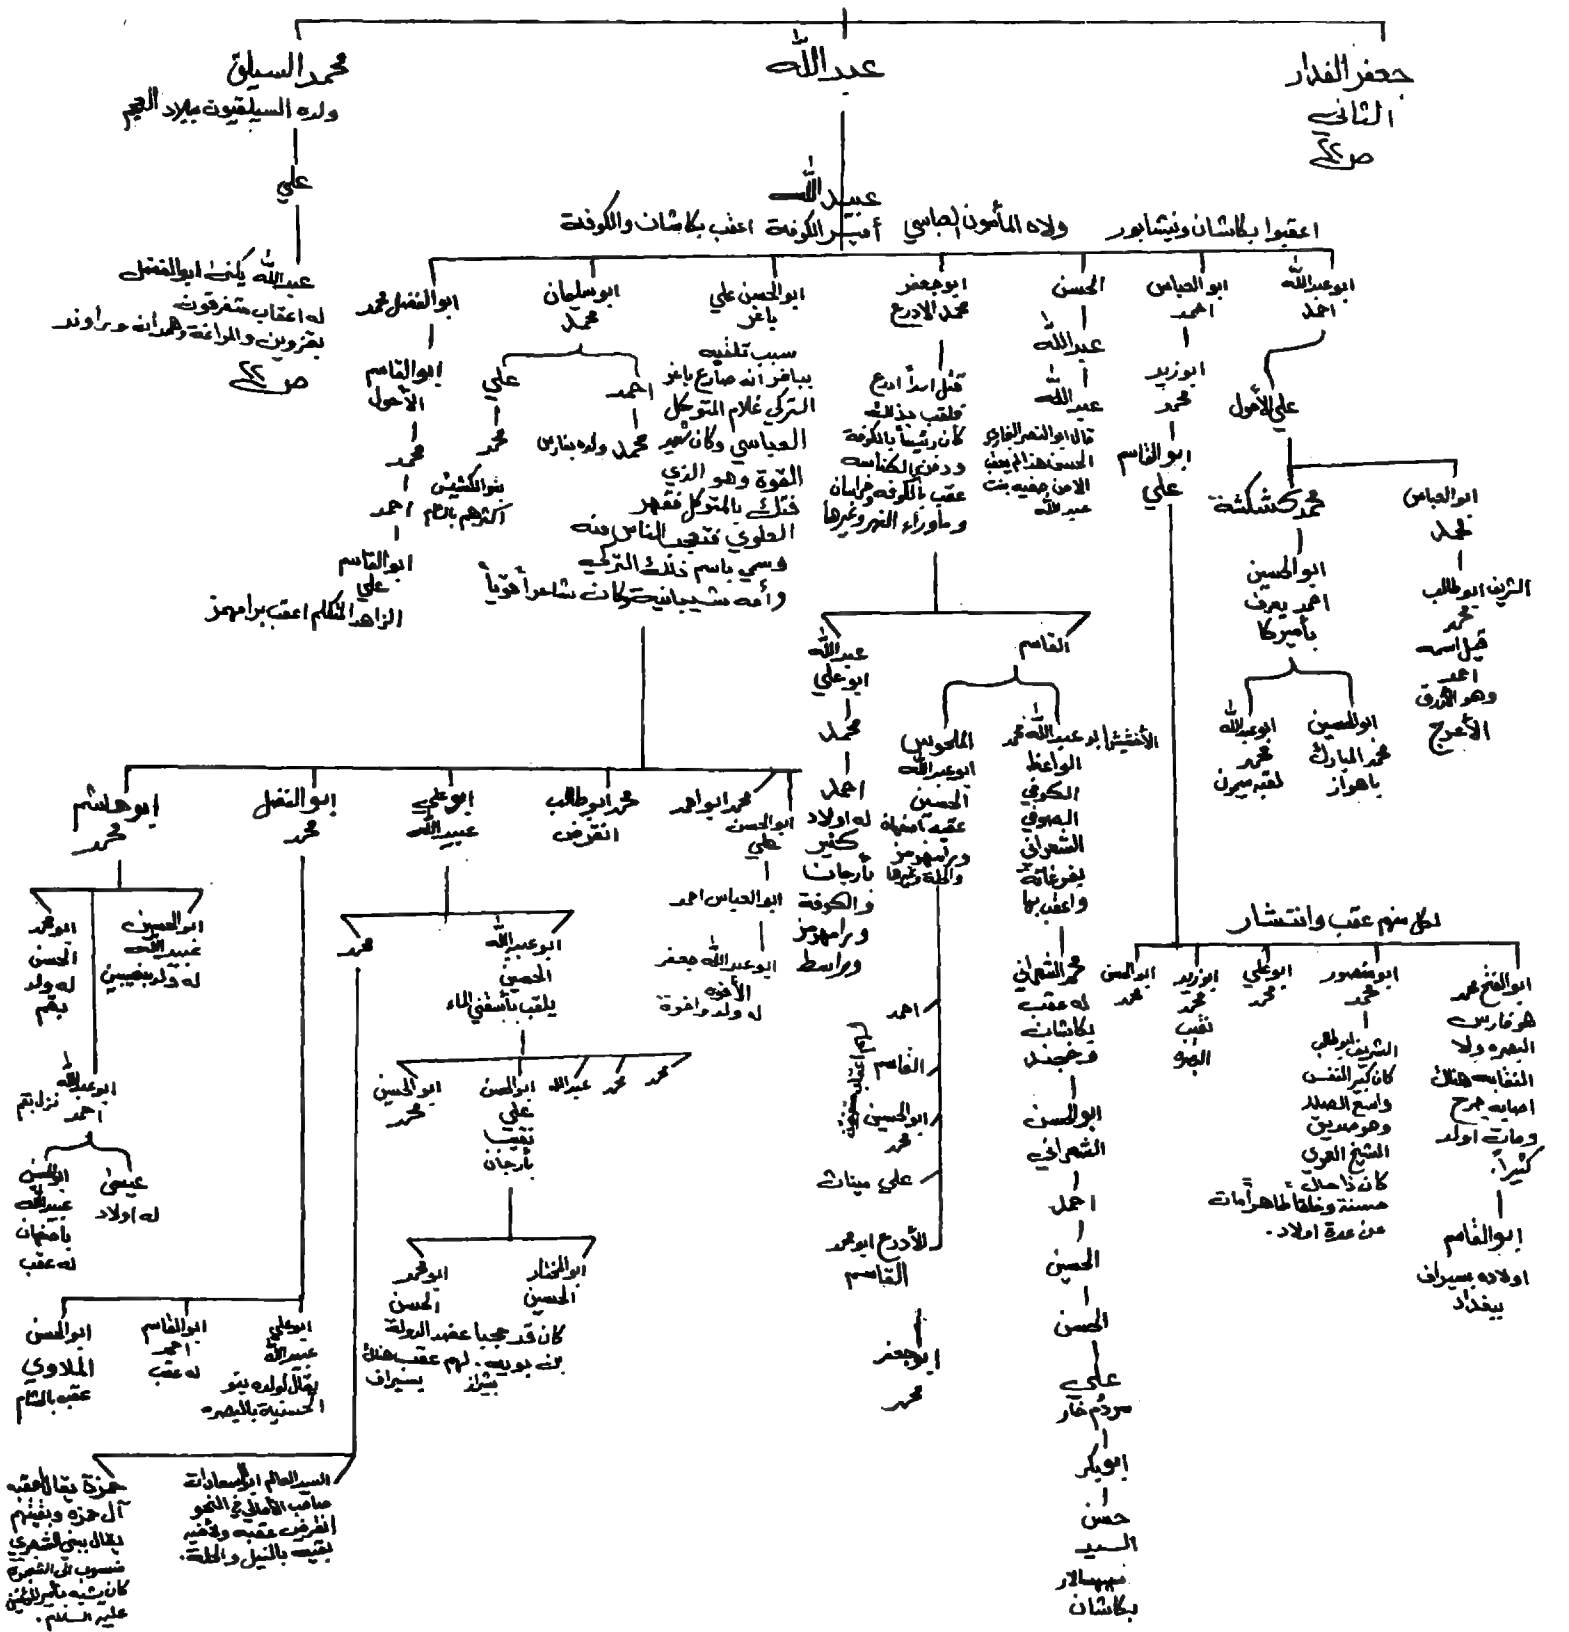 جعفر الغدار
الثاني
ص ٢٢
عبد الله
محمد السيلق
ولده السيلقيون ببلاد العجم
علي
عبد الله يكنى ابو الفضل
له اعقاب متفرقون
بقزوين والمراغة وهمدان وراوند
ص ٢٢
عبيد الله
أمير الكوفة اعقب بكاشان والكوفة
ولاه المأمون العباسي
اعقبوا بكاشان ونيشابور
ابو عبد الله
احمد
علي الأحول
ابو العباس
محمد
الشريف ابو طالب
محمد
قيل اسمه
احمد
وهو
الأعرج
محمد كشكشة
ابو الحسين
احمد يعرف
بأميركا
ابو الحسين
محمد المبارك
باهواز
ابو عبد الله
محمد
لقبه ميمون
ابو العباس
احمد
ابو زيد
محمد
ابو القاسم
علي
لكل منهم عقب وانتشار
ابو الفتح محمد
هو فارس
البصره ولا
النقابه هناك
اصابه جرح
ومات اولد
كثيراً.
ابو القاسم
اولاده بسيراف
ببغداد
ابو منصور
محمد
الشريف ابو طالب
كان كبير النفس
واسع الصدر
وهو صديق
الشيخ العمري
كان ذا حال
حسنة وخلقاً طاهراً مات
عن عدة اولاد.
ابو علي
محمد
ابو زيد
محمد
نقيب
البصره
ابو الحسن
محمد
الحسن
عبد الله
عبد الله
قال ابو النصر البخاري
الحسن هذا لم يعقب
الا من خفيه بنت
عبد الله
ابو جعفر
محمد الادرع
قتل اسداً ادرع
فلقب بذلك
كان رئيساً بالكوفة
ودفن بالكناسه
عقب بالكوفه وخراسان
وماوراء النهر وغيرها
القاسم
الأخيش ابو عبد الله محمد
الواعظ
الكوفي
الصوفي
الشعراني
بفرغانة
واعقب بها
محمد الشعراني
له عقب
بكاشان
وخجند
ابو الحسن
الشعراني
احمد
الحسين
الحسن
علي
مردم خار
ابو بكر
حسن
السيد
سپهسالار
بكاشان
الملحوس
ابو عبد الله
الحسين
عقبه باصفهان
ورامهرمز
والحلة وغيرها
احمد
القاسم
ابو الحسين
محمد
علي ميناث
الأدرع ابو محمد
القاسم
لهم اعقاب متفرقون
ابو جعفر
محمد
عبد الله
ابو علي
محمد
احمد
له اولاد
كثير
بأرجان
والكوفة
ورامهرمز
وبراسط
ابو الحسن علي
باغر
سبب تلقبه
بباغر انه صارع باغر
التركي غلام المتوكل
العباسي وكان شديد
القوة وهو الذي
فتك بالمتوكل فقهر
العلوي فتعجب الناس منه
وسمي باسم ذلك التركي
وأمه شيبانية وكان شاعراً قوياً
ابو سليمان
محمد
احمد
محمد ولده بفارس
علي
محمد
اكثرهم بالشام
ابو الفضل محمد
ابو القاسم
الأحول
محمد
احمد
ابو القاسم
علي
الزاهد المتكلم اعقب برامهرمز
ابو الحسن
علي
ابو العباس احمد
ابو عبد الله جعفر
الأفوه
له ولد واخوة
محمد ابو احمد
محمد ابو طالب
انقرض
ابو علي
عبيد الله
ابو عبيد الله
الحسين
يلقب بأسقني الماء
محمد
محمد
عبد الله
ابو الحسن
علي
نقيب
بأرجان
ابو الحسين
محمد
ابو المختار
الحسين
ابو محمد
الحسن
كان قد حجبا عضد الدولة
بن بويه. لهم عقب هناك
بشيراز
بسيراف
محمد
السيد العالم ابو السعادات
صاحب الأمالي في النحو
انقرض عقبه ولأخيه
بقيه بالنيل والحلة.
حمزة يقال لعقبه
آل حمزه وبقيتهم
يقال بيني الشجري
منسوب الى الشجرة
كان يشبه بأمير المؤمنين
عليه السلام.
ابو الفضل
محمد
ابو علي
عبيد الله
يقال لولده بنو
الحسنية بالبصره
ابو القاسم
احمد
له عقب
ابو الحسن
الملاوي
عقبه بالشام
ابو هاشم
محمد
ابو الحسين
عبيد الله
له ولد بنصيبين
ابو محمد
الحسن
له ولد
بقم
ابو عبد الله
احمد نزل بقم
عيسى
له اولاد
ابو الحسن
عبيد الله
بأصفهان
له عقب